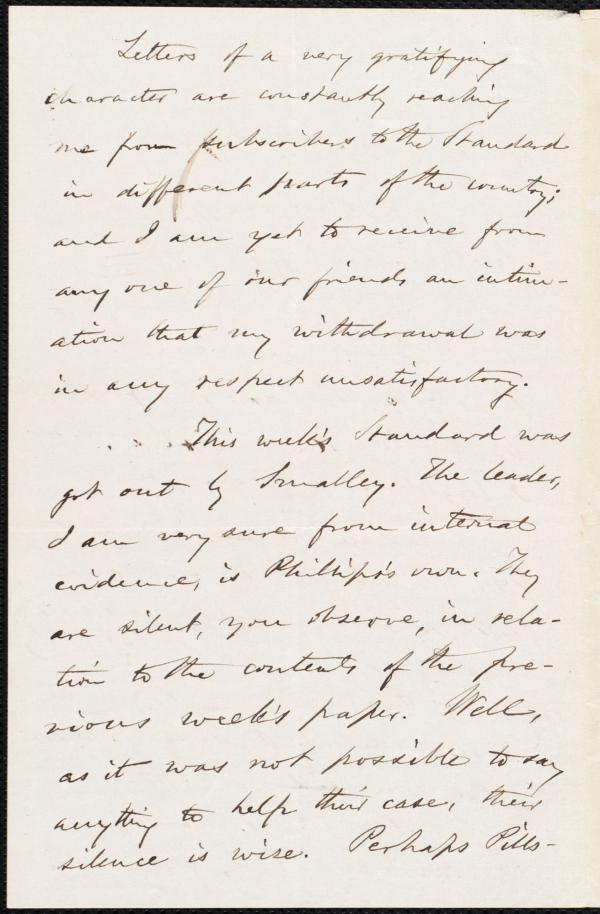 Letters of a very gratifying
character are constantly reaching
me from subscribers to the Standard
in different parts of the country;
and I am yet to receive from
any one of our friends an intim-
ation that my withdrawal was
in any respect unsatisfactory.
. . . This week's Standard was
got out by Smalley. The leader,
I am very sure from internal
evidence, is Phillips's own. They
are silent, you observe, in rela-
tion to the contents of the pre-
vious week's paper. Well,
as it was not possible to say
anything to help their case, their
silence is wise. Perhaps Pills-